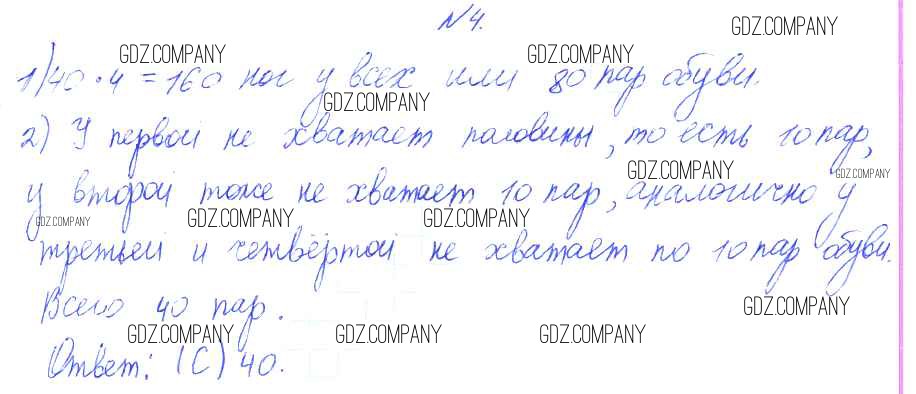 №4.
GDZ.COMPANY
GDZ.COMPANY GDZ.COMPANY
1) 40 · 4 = 160 ног у всех или 80 пар обуви.
GDZ.COMPANY
2) У первой не хватает половины, то есть 10 пар,
GDZ.COMPANY GDZ.COMPANY
у второй тоже не хватает 10 пар, аналогично у
GDZ.COMPANY GDZ.COMPANY GDZ.COMPANY
третьей и четвёртой не хватает по 10 пар обуви.
Всего 40 пар.
GDZ.COMPANY
GDZ.COMPANY GDZ.COMPANY GDZ.COMPANY
Ответ: (С) 40.